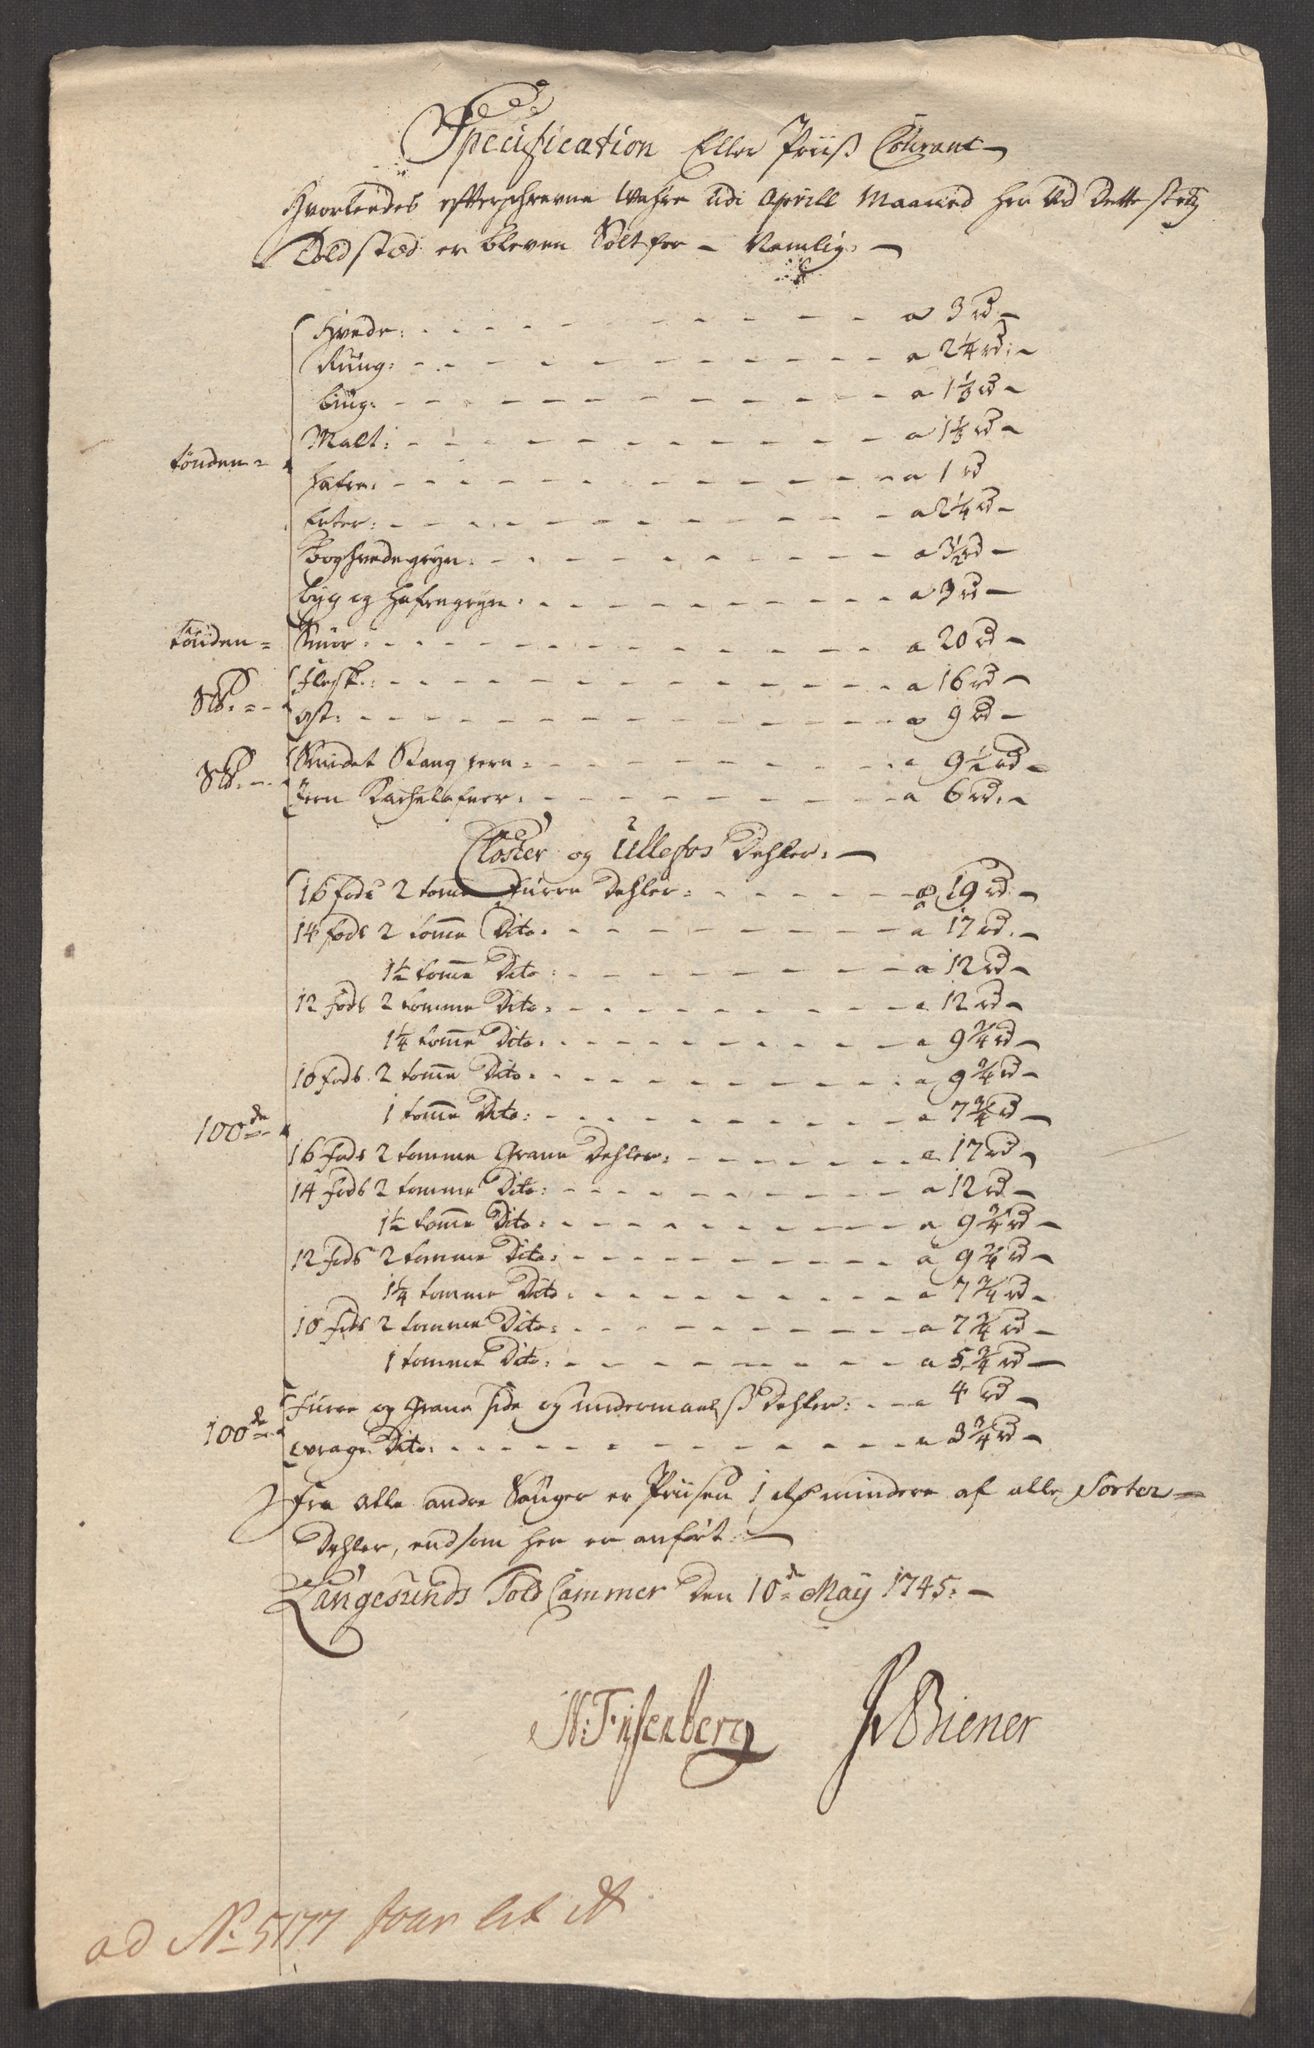 Specification Eller Priiß Courant
Hvorledes efterschrevne Wahre udi Aprill Maaned her Ved Dette steds
Toldstæd er bleven Solt for - Nemlig:
Hvede: a 3 rd
Rüng: a 2 1/4 rd
biüg: a 1 1/3 rd
Malt: a 1 1/3 rd
tönden =
Hafre: a 1 rd
Erter: a 2 1/4 rd
Boghvede gryn: a 3 1/2 rd
byg og Hafre gryn: a 3 rd
tönden = Smör: a 20 rd
Flesk: a 16 rd
Slb: =
ost: a 9 rd
Smidet Stang jern: a 9 1/2 rd
Slb:
Jern Kachelofner: a 6 rd
Closter og Ullefos Dehler:
16 fods 2 tome Furre Dehler: a 19 rd
14 fods 2 tome Dito: a 17 rd
1 1/2 tome Dito: a 12 rd
12 fods 2 tomme Dito: a 12 rd
1 1/4 tome Dito: a 9 3/4 rd
10 fods 2 tome Dito: a 9 3/4 rd
1 tome Dito: a 7 3/4 rd
100de
16 fods 2 tomme Grane Dehler: a 17 rd
14 fods 2 tomme Dito: a 12 rd
1 1/2 tome Dito: a 9 3/4 rd
12 fods 2 tomme Dito: a 9 3/4 rd
1 1/4 tomme Dito: a 7 3/4 rd
10 fods 2 tomme Dito: a 7 3/4 rd
1 tomme Dito: a 5 3/4 rd
Furre og Grane side og undermaals Dehler: a 4 rd
100de
vrage Dito: a 3 3/4 rd
Fra alle andre Sauger er Priisen 1 rd mindere af alle Sorter
Dehler, end som her er anfört:
Langesunds Told Cammer Den 10de May 1745:
N: Tÿsenberg Biener
ad No 5177 Lit A